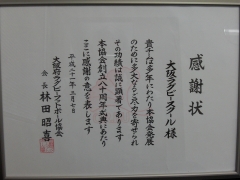 感謝状
大阪ラグビースクール様
貴方は多年にわたり本協会発展
のために多大なるご尽力を寄せられ
その功績は誠に顕著であります
本協会創立八十周年式典にあたり
ここに感謝の意を表します
平成二十一年三月七日
大阪府ラグビーフットボール協会
会長 林田昭喜